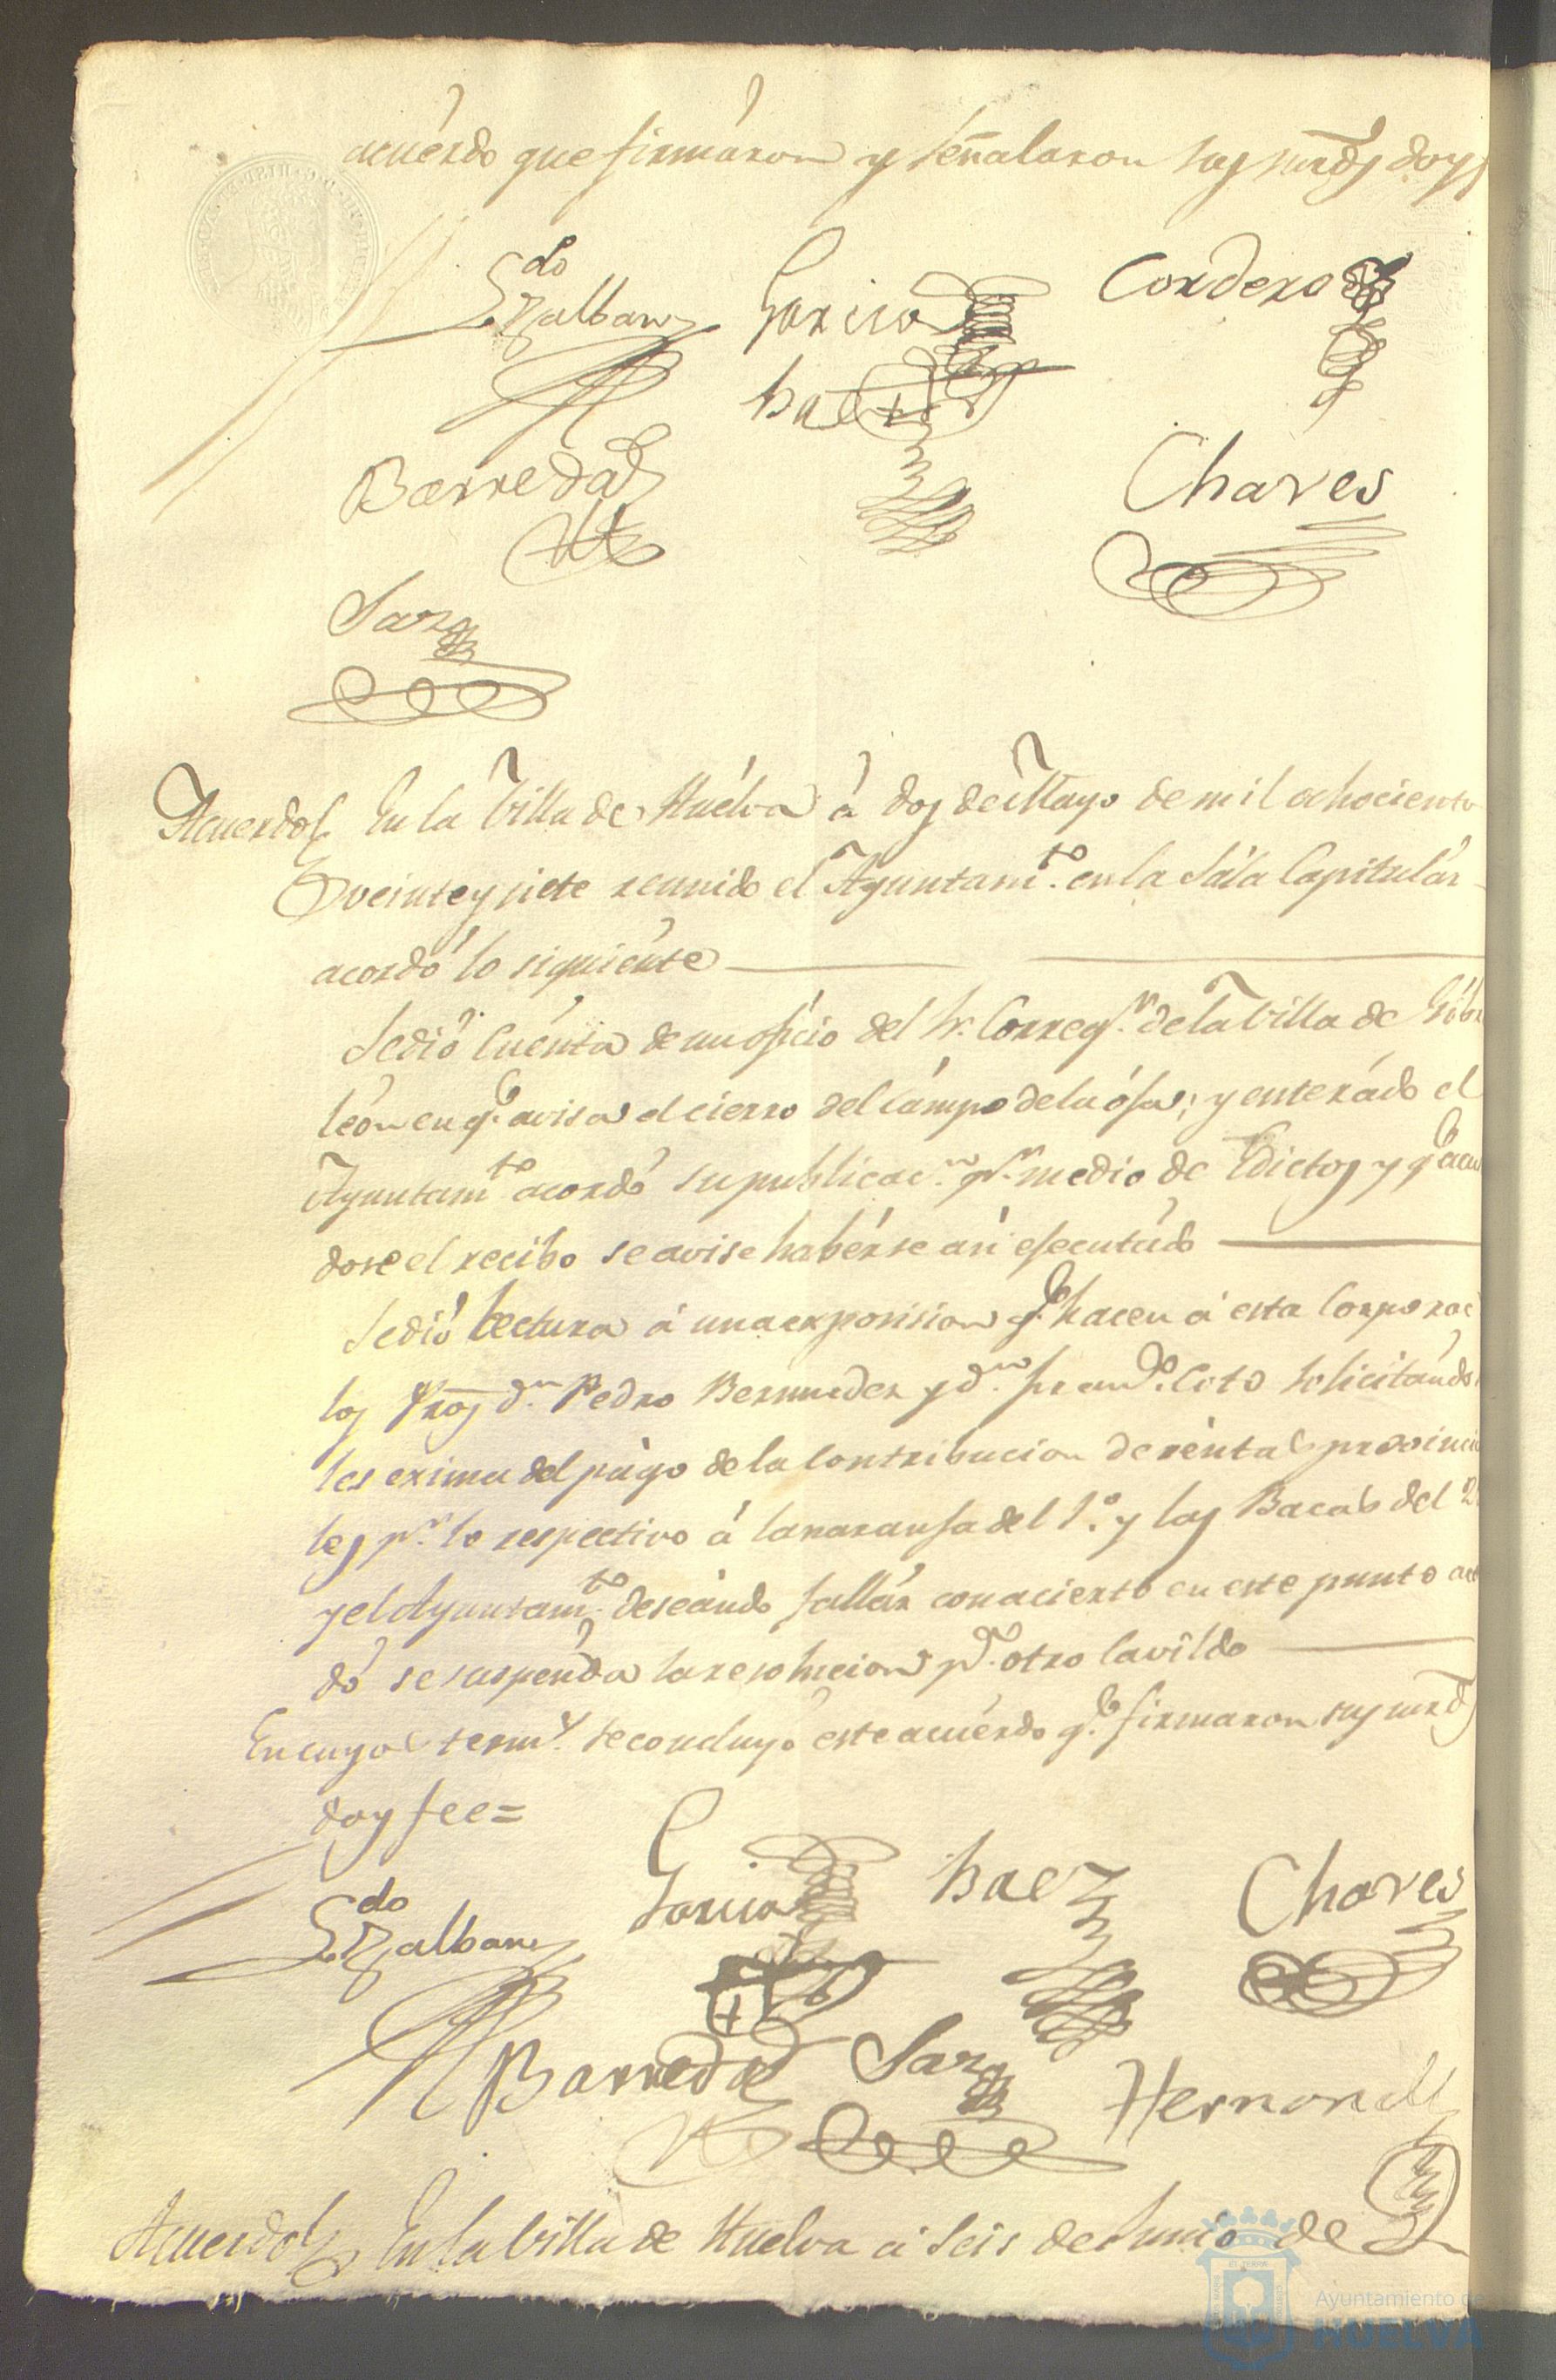 acuérdo que firmáron y señalaron sus mrds doy
Ldo
Zalbany García Cordero
baez
Barreda Chaves
Sanz
Acuerdo En la Villa de Huélva á dos de Mayo de mil ochociento
veinte y siete reunido el Ayuntamto. en la Sála Capitulár
acordó lo siguiénte
Se dió Cuénta de un oficio del Sr. Corregr. de la villa de Gibra
león en qe. avisa el cierro del Cámpo de la ósa; y enterádo el
Ayuntamto. acordó su publicacn. pr. medio de Edictos y qe. acu
dose el recibo se avise habérse así efecutádo
Se dió lectura á una exposision qe. hacen á esta Corporac
los Pros Dn. Pedro Bermudez y dn. Francdo. Coto solicitándo
les exima del págo de la Contribucion de réntas provincia
les pr. lo respectivo á la naranja del 1o. y las Bacas del 2
y el Ayuntamto. deseándo fallár con acierto en este punto acor
dó se suspénda la resolucion pa. otro Cavildo
En cuyos terms. se concluyó este acuérdo qe. firmaron sus mrds
doy fee=
Ldo
Zalbany García baez Chaves
Barreda Sanz Hernond
Acuerdo En la villa de Huelva á seis de Junio de
Ayuntamiento de
HUELVA